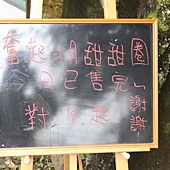 奮起湖甜甜圈
今日已售完~
對不起! 謝謝